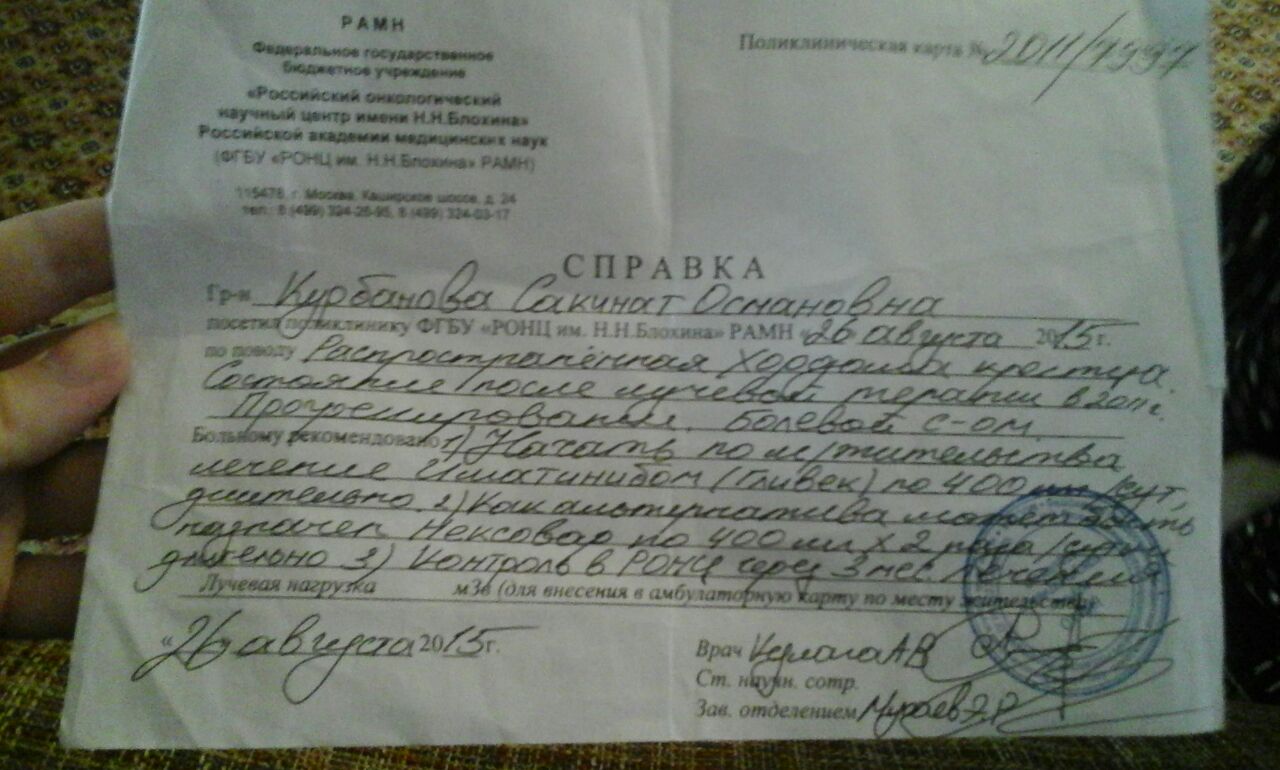 РАМН
Федеральное государственное
бюджетное учреждение
«Российский онкологический
научный центр имени Н.Н.Блохина»
Российской академии медицинских наук
(ФГБУ «РОНЦ им. Н.Н.Блохина» РАМН)
115478, г. Москва, Каширское шоссе, д. 24
тел.: 8 (499) 324-26-95, 8 (499) 324-03-17
Поликлиническая карта № 2011/7997
СПРАВКА
Гр-н Курбанова Сакинат Османовна
посетил поликлинику ФГБУ «РОНЦ им. Н.Н.Блохина» РАМН «26 августа 2015 г.
по поводу Распространённая хордома крестца.
Состояние после лучевой терапии в 2011 г.
Прогрессирование. Болевой с-ом.
Больному рекомендовано 1) Начать по м/жительства
лечение Иматинибом (Гливек) по 400 мг/сут,
длительно. 2) Как альтернатива может быть
назначен Нексавар по 400 мг х 2 раза/
длительно 3) Контроль в РОНЦ через 3 мес. лечения
Лучевая нагрузка мЗв (для внесения в амбулаторную карту по месту жительства)
«26» августа 2015 г.
Врач АВ
Ст. научн. сотр.
Зав. отделением